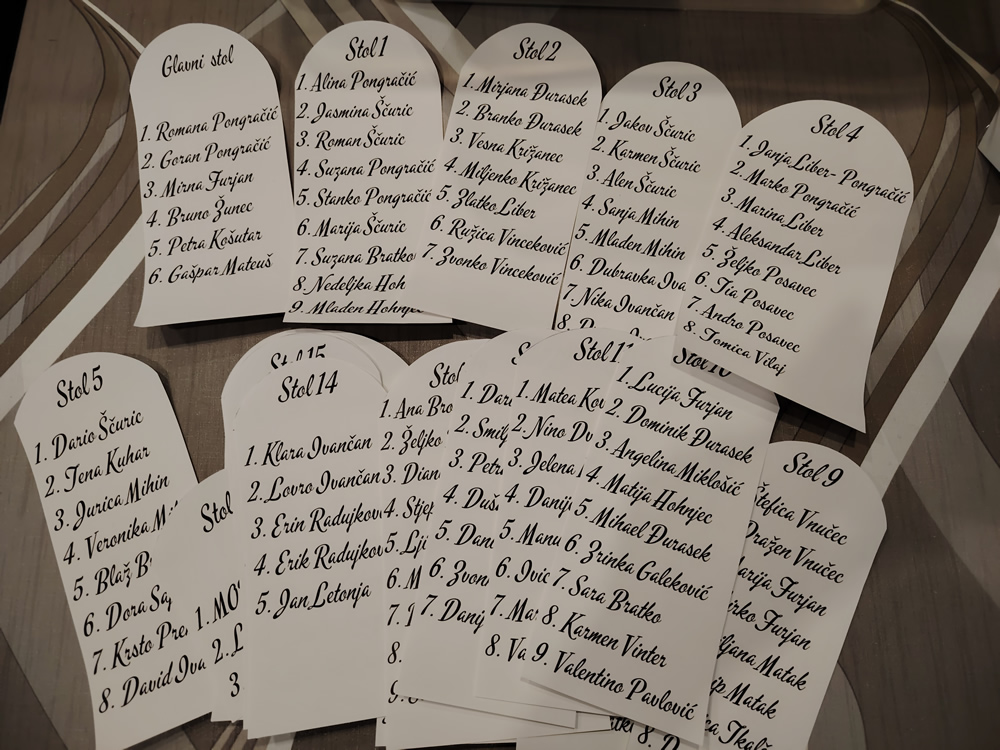 Glavni stol
1. Romana Pongračić
2. Goran Pongračić
3. Mirna Furjan
4. Bruno Žunec
5. Petra Košutar
6. Gašpar Mateuš
Stol 1
1. Alina Pongračić
2. Jasmina Ščuric
3. Roman Ščuric
4. Suzana Pongračić
5. Stanko Pongračić
6. Marija Ščuric
7. Suzana Bratko
8. Nedeljka Hoh
9. Mladen Hohnjec
Stol 2
1. Mirjana Đurasek
2. Branko Đurasek
3. Vesna Križanec
4. Miljenko Križanec
5. Zlatko Liber
6. Ružica Vinceković
7. Zvonko Vinceković
Stol 3
1. Jakov Ščuric
2. Karmen Ščuric
3. Alen Ščuric
4. Sanja Mihin
5. Mladen Mihin
6. Dubravka Iva
7. Nika Ivančan
8.
Stol 4
1. Janja Liber- Pongračić
2. Marko Pongračić
3. Marina Liber
4. Aleksandar Liber
5. Željko Posavec
6. Tia Posavec
7. Andro Posavec
8. Tomica Vilaj
Stol 5
1. Dario Ščuric
2. Jena Kuhar
3. Jurica Mihin
4. Veronika M
5. Blaž B
6. Dora Sa
7. Krsto Pre
8. David Iva
Stol
1. MO
2. L
3
Stol 15
Stol 14
1. Klara Ivančan
2. Lovro Ivančan
3. Erin Radujkov
4. Erik Radujkov
5. Jan Letonja
Stol
1. Ana Bro
2. Željko
3. Dian
4. Stjep
5. Lji
6. M
7.
8.
9.
1. Dar
2. Smilj
3. Petr
4. Duš
5. Dan
6. Zvon
7. Danij
Stol 1
1. Matea Kov
2. Nino Đu
3. Jelena
4. Danij
5. Manu
6. Ivic
7. Ma
8. Va
Stol 10
1. Lucija Furjan
2. Dominik Đurasek
3. Angelina Miklošić
4. Matija Hohnjec
5. Mihael Đurasek
6. Zrinka Galeković
7. Sara Bratko
8. Karmen Vinter
9. Valentino Pavlović
Stol 9
Štefica Vnučec
Dražen Vnučec
arija Furjan
irko Furjan
iljana Matak
ip Matak
ica Tkalč
8. D